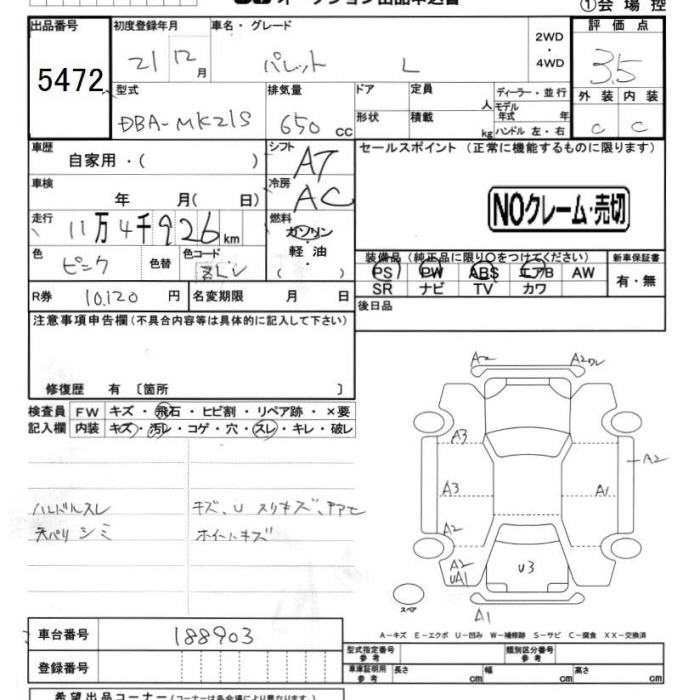 ①会場控
出品番号 5472
初度登録年月 21 12月
車名・グレード パレット L
2WD・4WD
評価点 3.5
外装 C 内装 C
型式 DBA-MK21S
排気量 650 CC
ドア 定員 人
形状 積載 kg
ディーラー・並行
モデル年式 年
ハンドル 左・右
車歴 自家用・( )
シフト AT
セールスポイント(正常に機能するものに限ります)
車検 年 月( 日)
冷房 AC
NOクレーム・売切
走行 11万4千926km
燃料 ガソリン・軽油 ( )
色 ピンク 色替 色コード
装備品(純正品に限り○をつけてください)
PS PW ABS エアB AW
SR ナビ TV カワ
新車保証書 有・無
R券 10,120円 名変期限 月 日
後日品
注意事項申告欄(不具合内容等は具体的に記入して下さい)
修復歴 有 〔箇所 〕
検査員記入欄 FW キズ・飛石・ヒビ割・リペア跡・×要
内装 キズ・汚レ・コゲ・穴・スレ・キレ・破レ
ハンドルスレ キズ、U スリキズ、
天バリシミ ホイールキズ
A2 A2
A3
A2
A3 A1
A2
A2
UA1 U3
スペア A1
A-キズ E-エクボ U-凹み W-補修跡 S-サビ C-腐食 XX-交換済
車台番号 188903
型式指定番号 参考 類別区分番号 参考
登録番号
車庫証明用 参考 長さ cm 幅 cm 高さ cm
希望出品コーナー